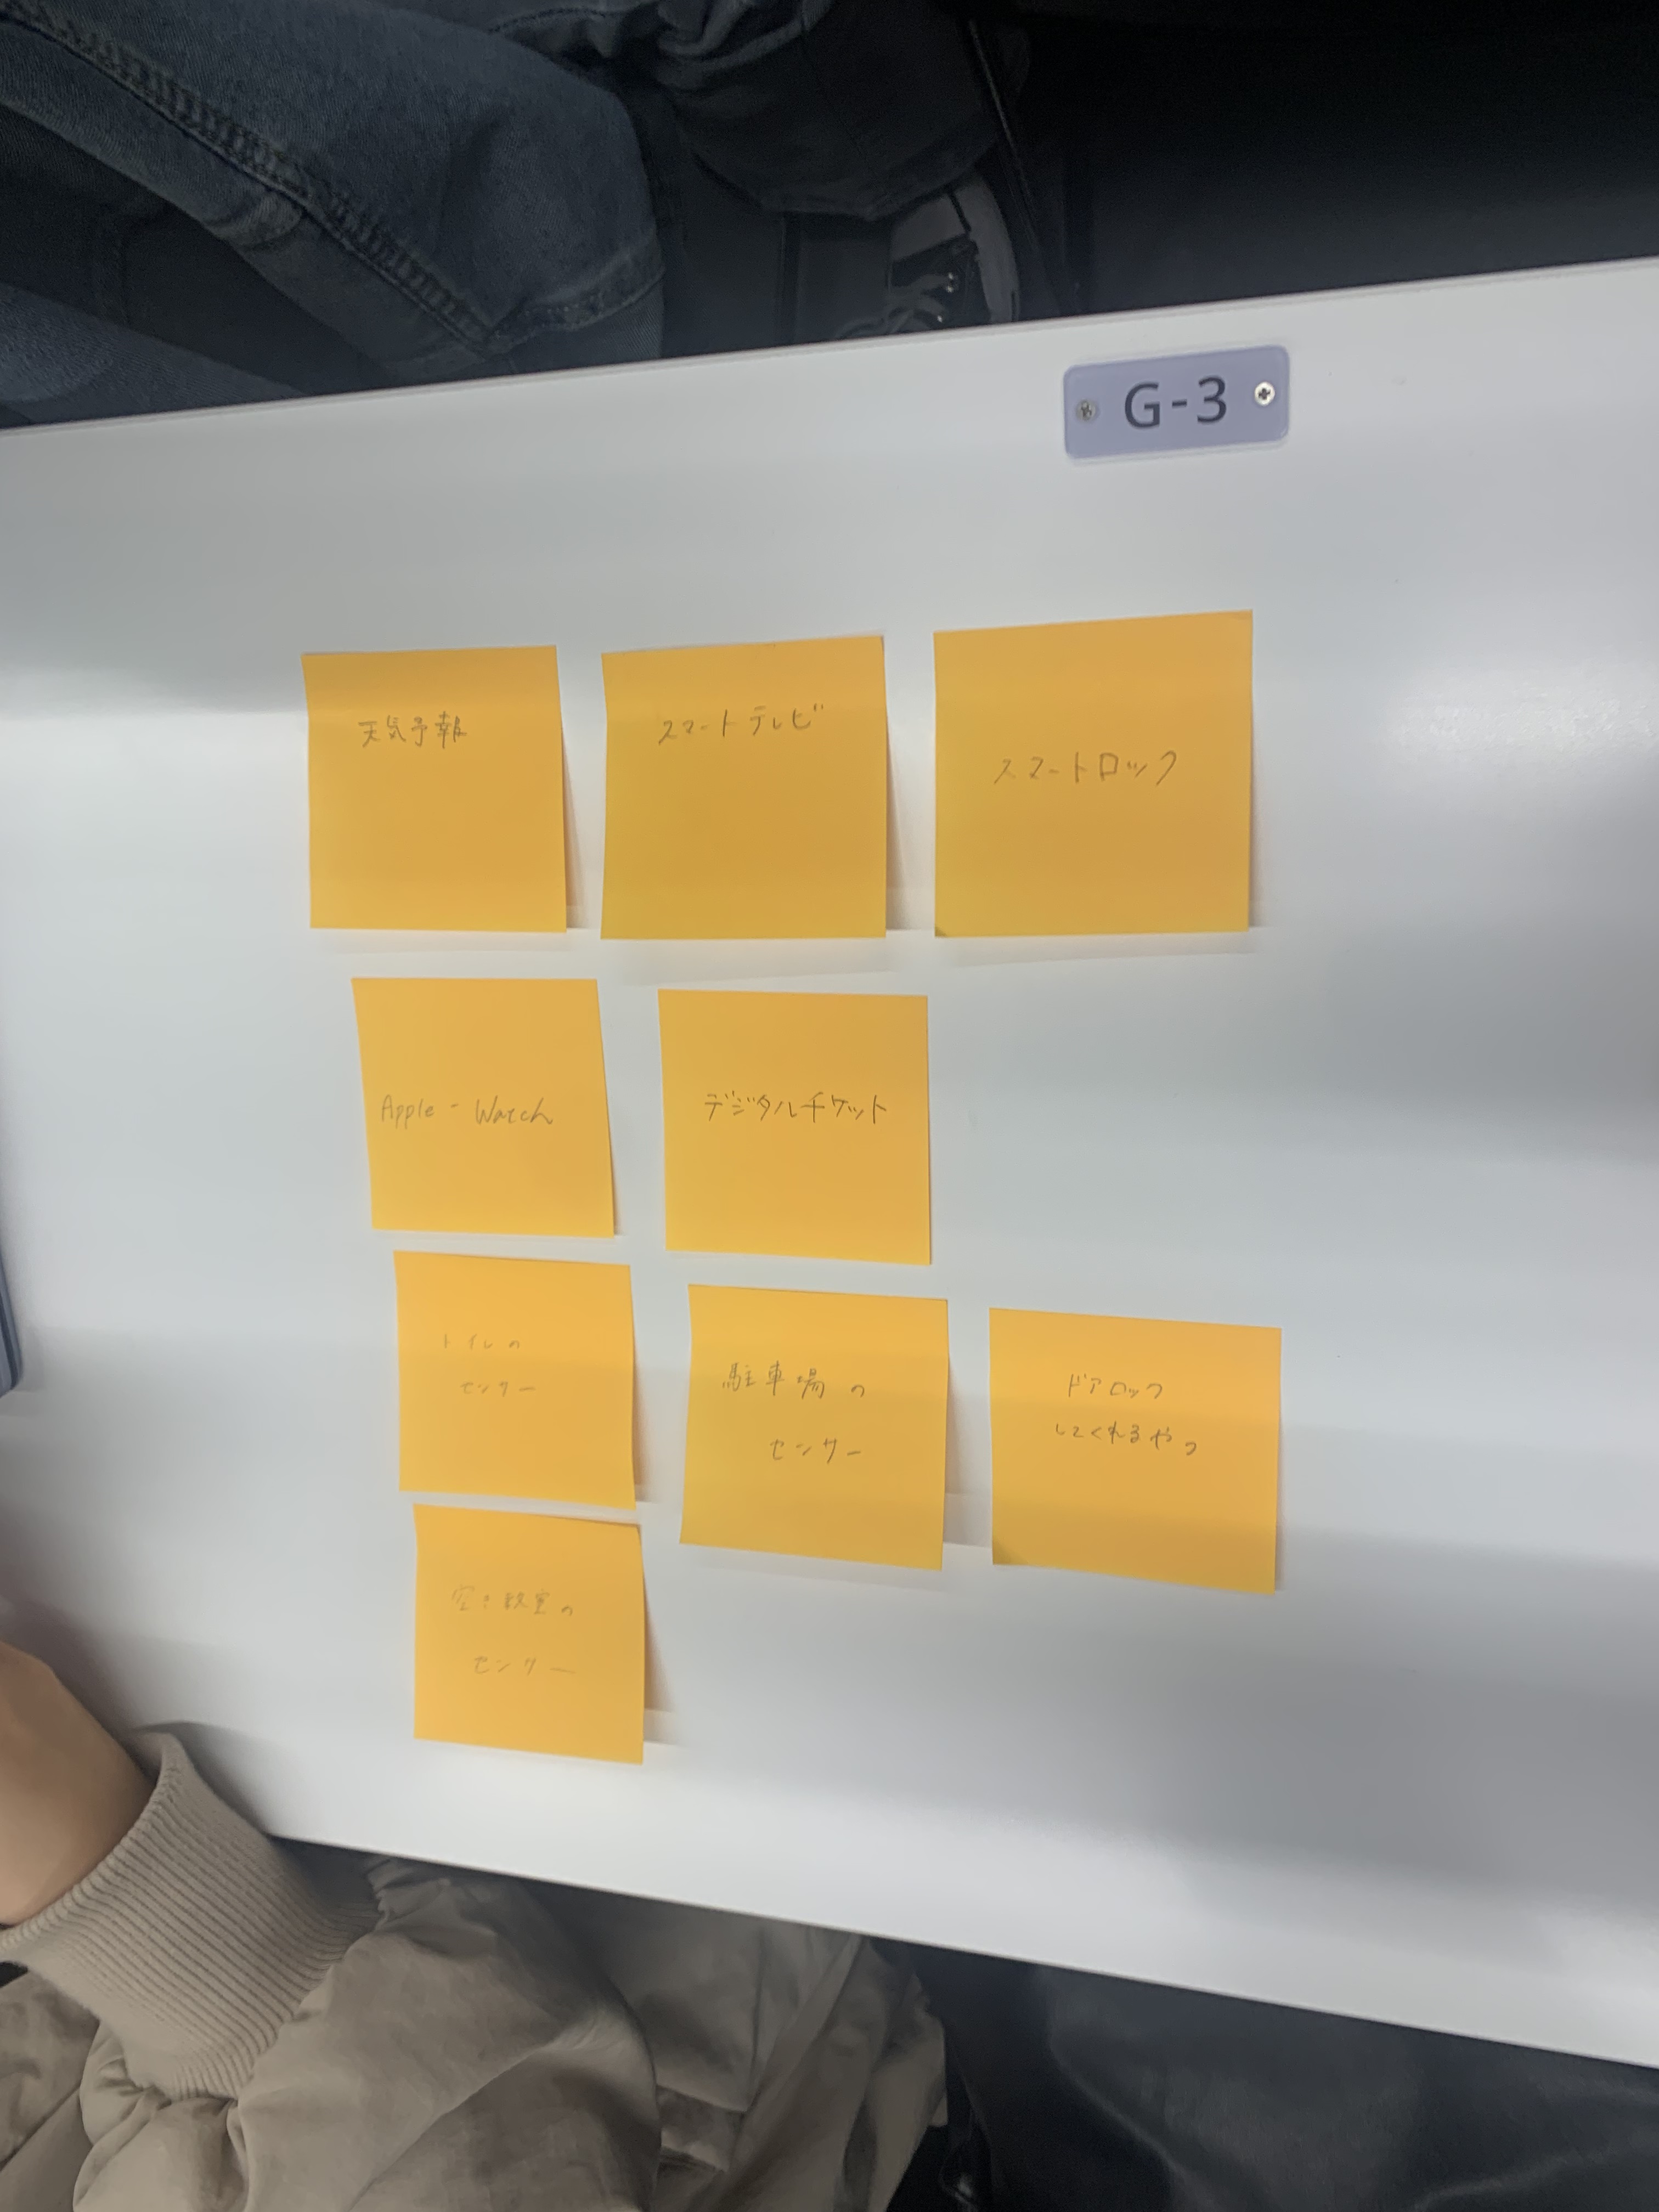 G-3
天気予報
スマートテレビ
スマートロック
Apple - Watch
デジタルチケット
トイレの
センサー
駐車場の
センサー
ドアロック
してくれるやつ
空き教室の
センサー